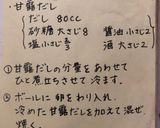 ・甘露だし
だし 80cc
砂糖 大さじ8 醤油 小さじ2
塩 小さじ 酒 大さじ2
①甘露だしの分量をあわせて
ひと煮立ちさせて冷ます。
②ボールに卵をわり入れ、
冷めた甘露だしを加えて混ぜ
焼く。